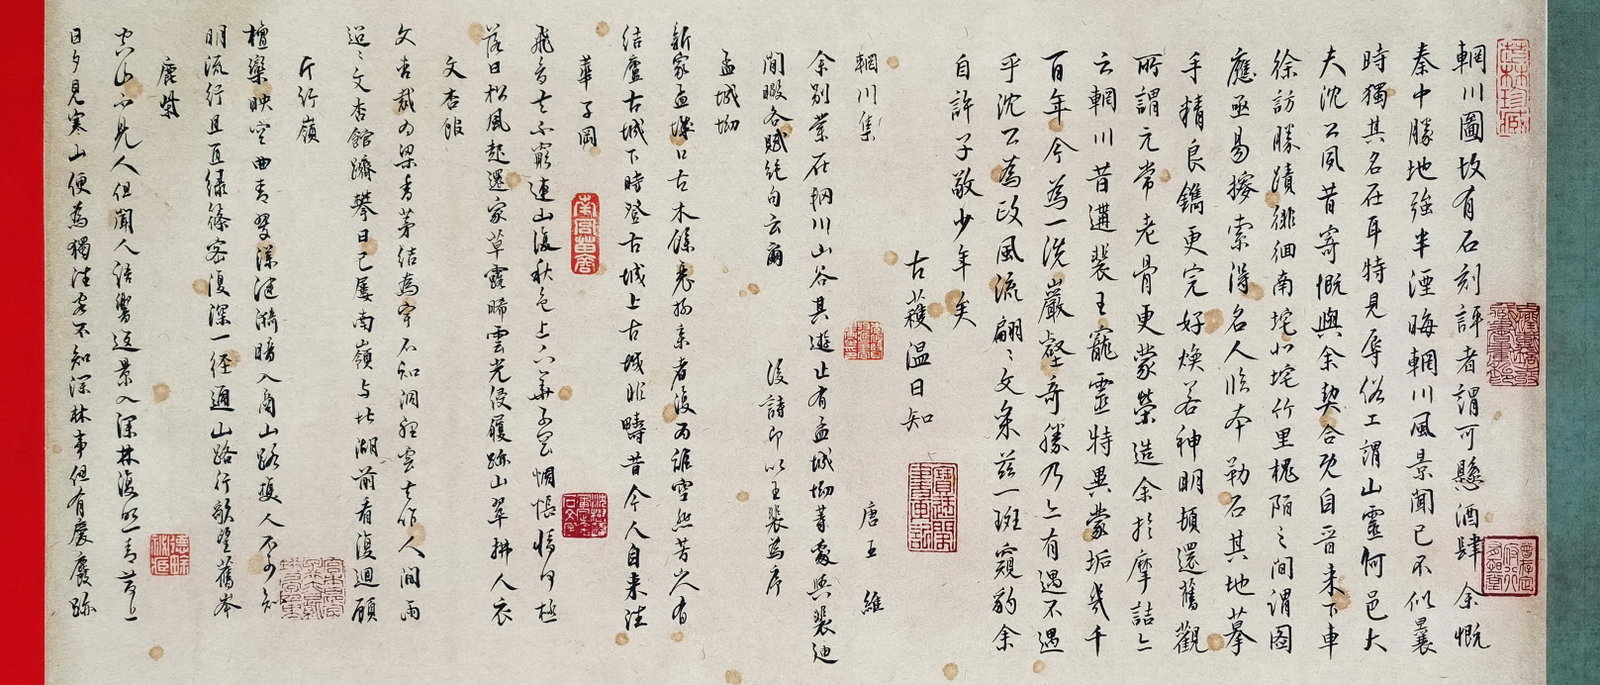 輞川圖故有石刻評者謂可懸酒肆余慨
秦中勝地強半湮晦輞川風景聞已不似曩
時獨其名在耳特見辱俗工謂山靈何邑大
夫沈公夙昔寄慨與余契合既自晉来下車
徐訪勝蹟徘徊南垞北垞竹里槐陌之間謂图
應亟易搜索得名人临本勒石其地摹
手精良鐫更完好煥若神明頓還舊觀
所謂元常老骨更蒙榮造余於摩詰亦
云輞川昔遘裴王寵靈特異蒙垢幾千
百年今為一洗巖壑奇勝乃亦有遇不遇
乎沈公為政風流翩〻文采兹一斑窺豹余
自許子敬少年矣
古蘀温日知
輞川集 唐王維
余别業在輞川山谷其遊止有孟城坳等處與裴迪
閒暇各賦絶句云爾 後詩即以王裴為序
孟城坳
新家孟城口古木餘衰柳来者復为誰空悲昔人有
結廬古城下時登古城上古城非疇昔今人自来往
華子岡
飛鳥去不窮連山復秋色上下華子岡惆悵情何極
落日松風起還家草露晞雲光侵履跡山翠拂人衣
文杏館
文杏裁为梁香茅結為宇不知洞裡雲去作人間雨
迢〻文杏館躋攀日已屢南嶺与北湖前看復迴顧
斤竹嶺
檀欒映空曲青翠漾漣漪暗入商山路樵人不可知
明流行且直绿篠密復深一徑通山路行歌望舊岑
鹿柴
空山不見人但聞人語響返景入深林復照青苔上
日夕見寒山便為獨往客不知深林事但有麏麚跡